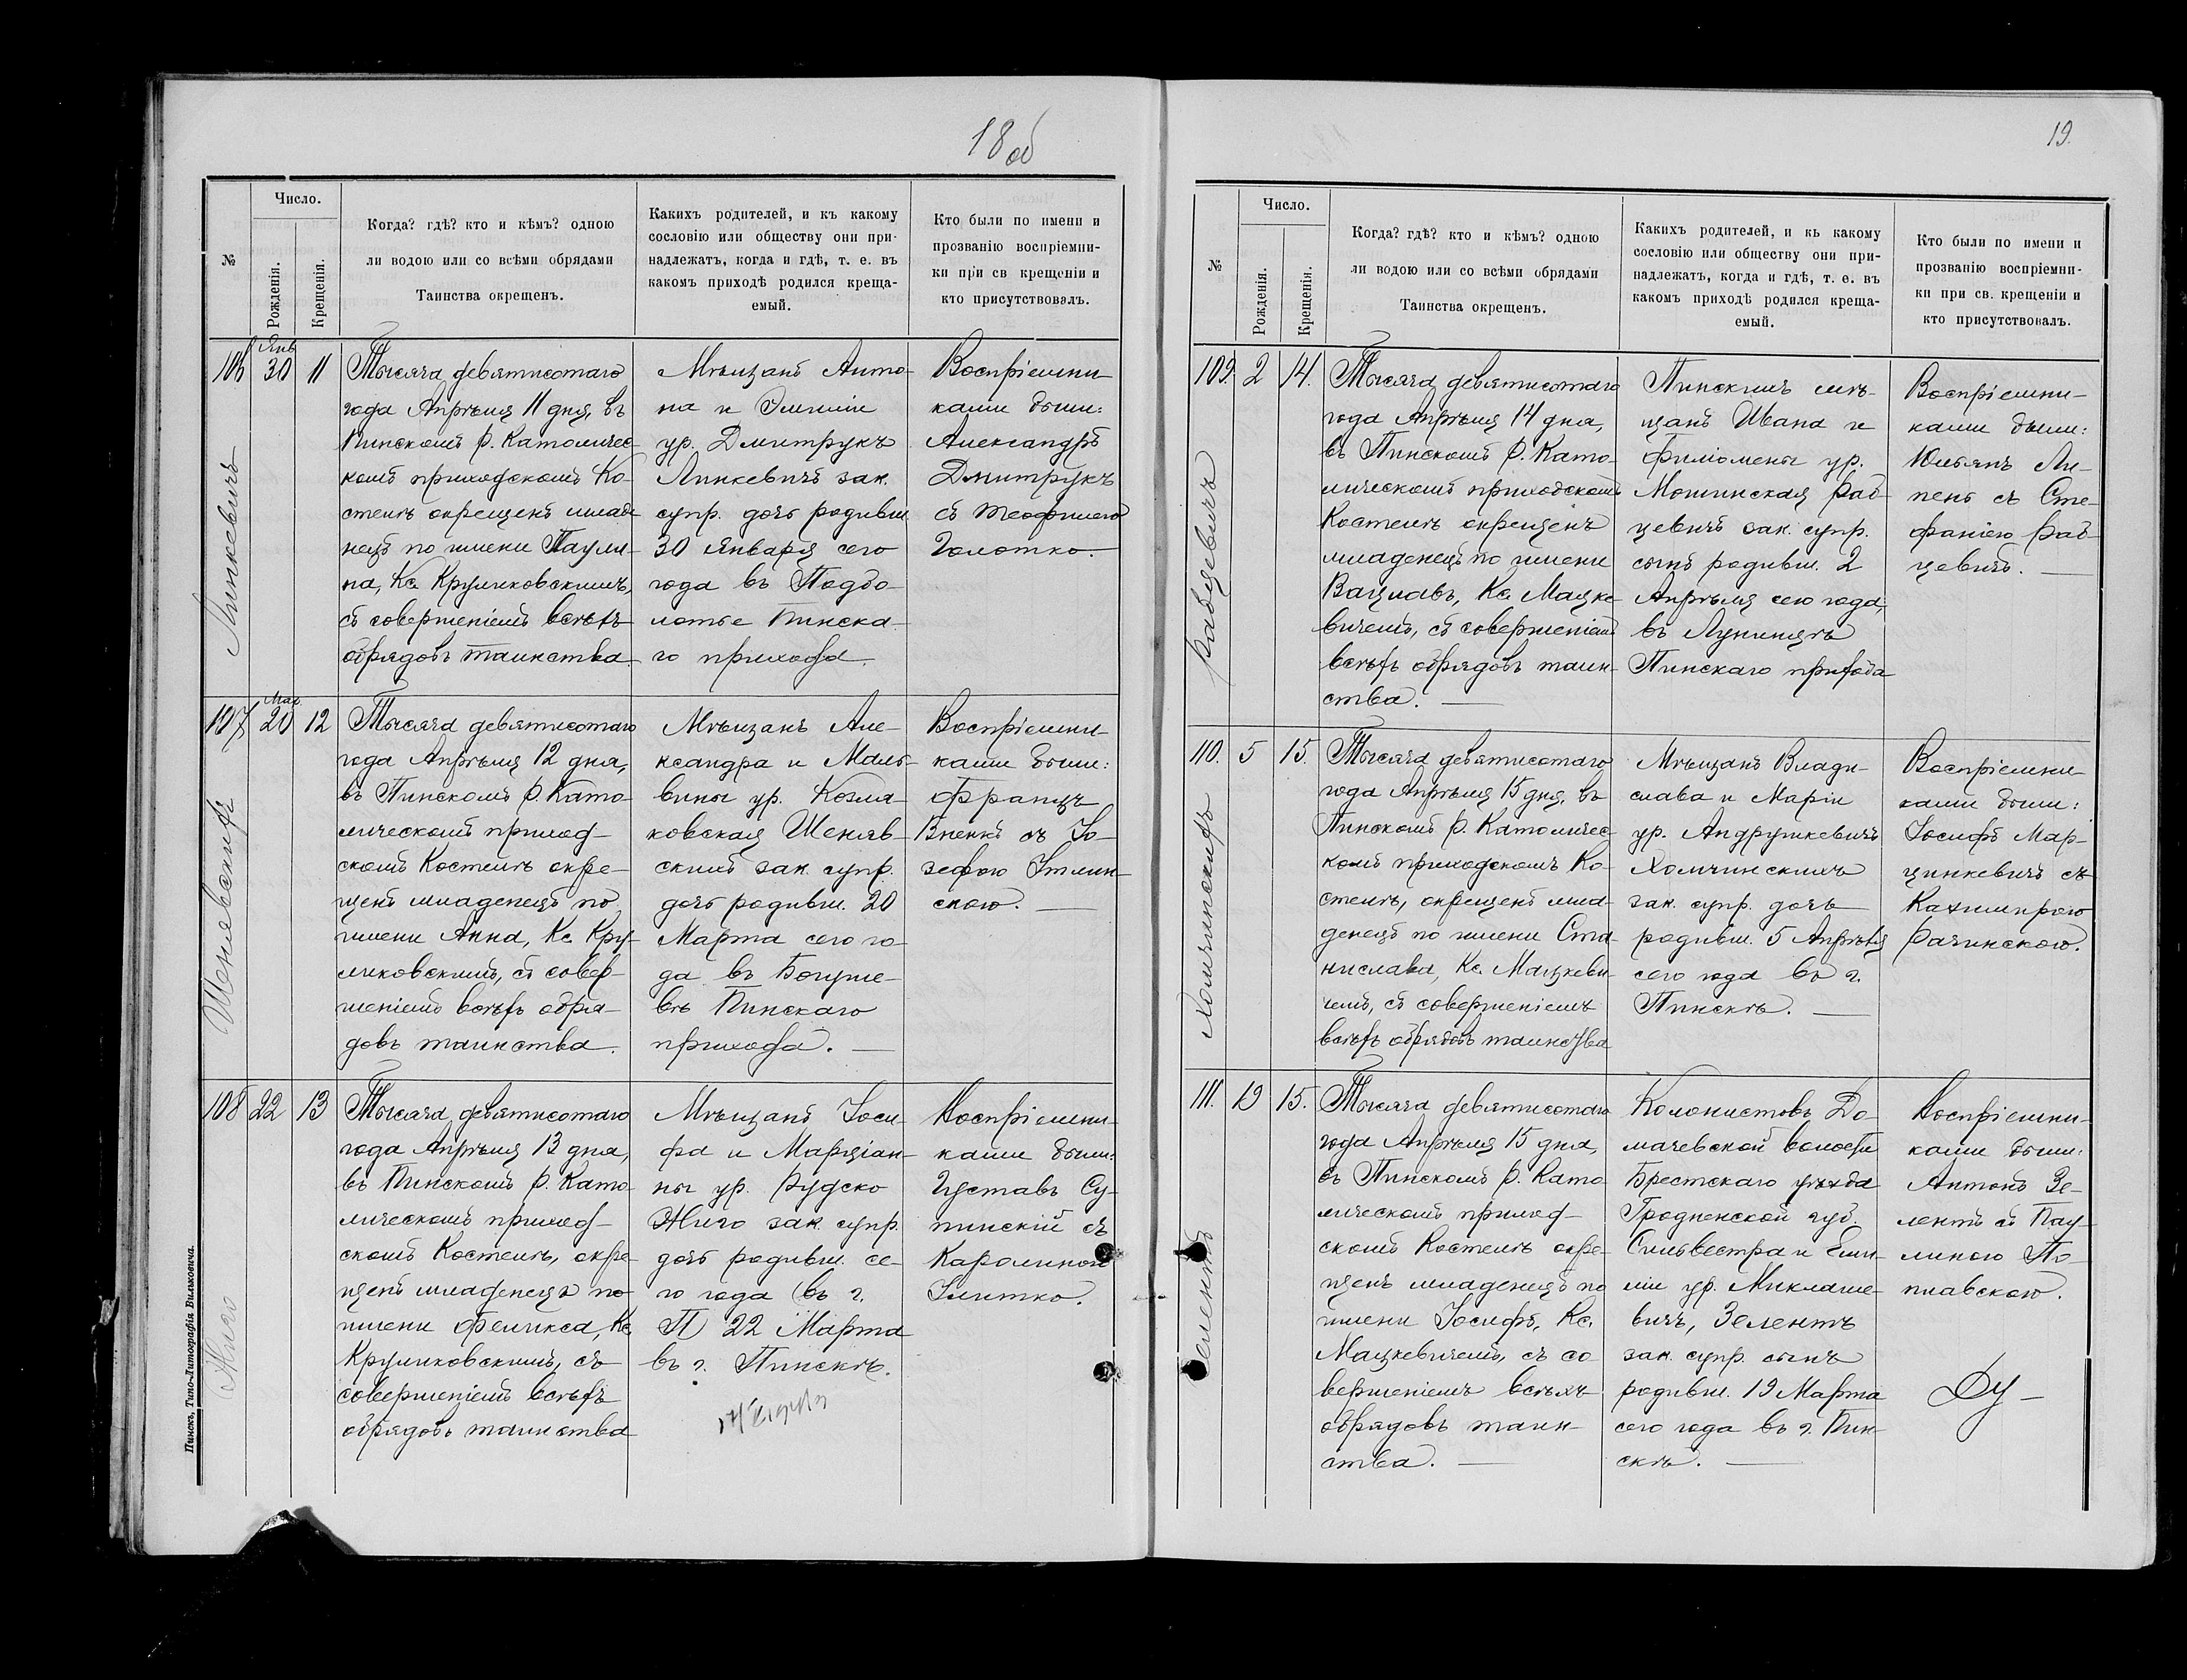 18об
№
Число.
Рожденія.
Крещенія.
Когда? гдѣ? кто и кѣмъ? одною
ли водою или со всѣми обрядами
Таинства окрещенъ.
Какихъ родителей, и къ какому
сословію или обществу они при-
надлежатъ, когда и гдѣ, т. е. въ
какомъ приходѣ родился креща-
емый.
Кто были по имени и
прозванію воспріемни-
ки при св крещеніи и
кто присутствовалъ.
106
Янв
30
11
Линкевичъ
Тысяча девятисотаго
года Апрѣля 11 дня, въ
Пинскомъ Р. Католичес-
комъ приходскомъ Ко-
стелѣ окрещенъ младе
нецъ по имени Паули-
на, Кс. Круликовскимъ,
съ совершеніемъ всѣхъ
обрядовъ таинства
Мѣщанъ Анто-
на и Эмиліи
ур. Дмитрукъ
Линкевичъ зак.
супр. дочь родивш.
30 Января сего
года въ Подбо-
лотье Пинска-
го прихода.
Воспріемни-
ками были:
Александръ
Дмитрукъ
съ Теофилею
Голотко.
107
Мар.
20
12
Шенявскихъ
Тысяча девятисотаго
года Апрѣля 12 дня,
въ Пинскомъ Р. Като-
лическомъ приход-
скомъ Костелѣ окре-
щенъ младенецъ по
имени Анна, Кс. Кру-
ликовскимъ, съ совер-
шеніемъ всѣхъ обря-
довъ таинства.
Мѣщанъ Але-
ксандра и Маль-
вины ур. Козля-
ковская Шеняв-
скихъ зак. супр.
дочь родивш. 20
Марта сего го-
да въ Богуше-
вѣ Пинскаго
прихода.
Воспріемни-
ками были:
Францъ
съ Іо-
зефою
скою.
108
22
13
Жиго
Тысяча девятисотаго
года Апрѣля 13 дня,
въ Пинскомъ Р. Като-
лическомъ приход-
скомъ Костелѣ, окре-
щенъ младенецъ по
имени Феликса, Кс.
Круликовскимъ, съ
совершеніемъ всѣхъ
обрядовъ таинства
Мѣщанъ Іоси-
фа и Марціан-
ны ур. Рудско
Жиго зак. супр.
дочь родивш. се-
го года (въ г.
П) 22 Марта
въ г. Пинскѣ.
Воспріемни-
ками были:
Густавъ Су-
пинскій съ
Каролиною
Улитко.
Пинскъ, Типо-Литографія Вильковича.
19.
№
Число.
Рожденія.
Крещенія.
Когда? гдѣ? кто и кѣмъ? одною
ли водою или со всѣми обрядами
Таинства окрещенъ.
Какихъ родителей, и къ какому
сословію или обществу они при-
надлежатъ, когда и гдѣ, т. е. въ
какомъ приходѣ родился креща-
емый.
Кто были по имени и
прозванію воспріемни-
ки при св. крещеніи и
кто присутствовалъ.
109.
2
14.
Рабцевичъ
Тысяча девятисотаго
года Апрѣля 14 дня,
въ Пинскомъ Р. Като-
лическомъ приходскомъ
Костелѣ окрещенъ
младенецъ по имени
Вацлавъ, Кс. Мацке-
вичемъ, съ совершеніемъ
всѣхъ обрядовъ таин-
ства.
Пинскихъ мѣ-
щанъ Ивана и
Филомены ур.
Мошинская Раб-
цевичъ зак. супр.
сынъ родивш. 2
Апрѣля сего года,
въ Лунинцѣ
Пинскаго прихода
Воспріемни-
ками были:
Юльянъ Ли-
пень съ Сте-
фаніею Раб-
цевичъ.
110.
5
15.
Холчинскихъ
Тысяча девятисотаго
года Апрѣля 15 дня, въ
Пинскомъ Р. Католичес-
комъ приходскомъ Ко-
стелѣ, окрещенъ мла-
денецъ по имени Ста-
нислава, Кс. Мацкеви-
чемъ, съ совершеніемъ
всѣхъ обрядовъ таинства
Мѣщанъ Влади-
слава и Маріи
ур. Андрушкевичъ
Холчинскихъ
зак. супр. дочь
родивш. 5 Апрѣля
сего года въ г.
Пинскѣ.
Воспріемни-
ками были:
Іосифъ Мар-
цинкевичъ съ
Казимирою
Рачинскою.
111.
19
15.
Зелентъ
Тысяча девятисотаго
года Апрѣля 15 дня,
въ Пинскомъ Р. Като-
лическомъ приход-
скомъ Костелѣ окре-
щенъ младенецъ по
имени Іосифъ, Кс.
Мацкевичемъ, съ со-
вершеніемъ всѣхъ
обрядовъ таин-
ства.
Колонистовъ До-
мачевской волости
Брестскаго уѣзда
Гродненской губ.
Сильвестра и Эми-
ліи ур. Миклаше-
вичъ, Зелентъ
зак. супр. сынъ
родивш. 19 Марта
сего года въ г. Пин-
скѣ.
Воспріемни-
ками были:
Антонъ Зе-
лентъ съ Пау-
линою По-
плавскою.